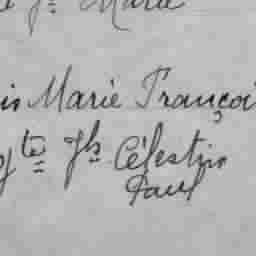 Jh Marie
is Marie Françoi
te Jh Célestin
Paul